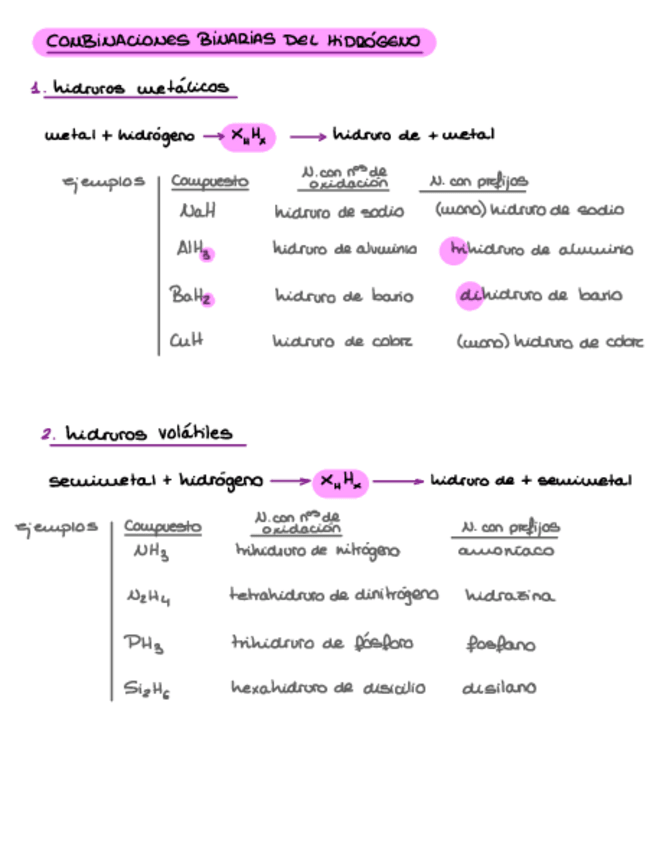 COMBINACIONES BINARIAS DEL HIDRÓGENO
1. hidruros metálicos
metal + hidrógeno → XₕHₓ → hidruro de + metal
ejemplos Compuesto N. con nᵒˢ de oxidación N. con prefijos
NaH hidruro de sodio (mono) hidruro de sodio
AlH₃ hidruro de aluminio trihidruro de aluminio
BaH₂ hidruro de bario dihidruro de bario
CuH hidruro de cobre (mono) hidruro de cobre
2. hidruros volátiles
semimetal + hidrógeno → XₕHₓ → hidruro de + semimetal
ejemplos Compuesto N. con nᵒˢ de oxidación N. con prefijos
NH₃ trihidruro de nitrógeno amoníaco
N₂H₄ tetrahidruro de dinitrógeno hidrazina
PH₃ trihidruro de fósforo fosfano
Si₂H₆ hexahidruro de disicilio disilano